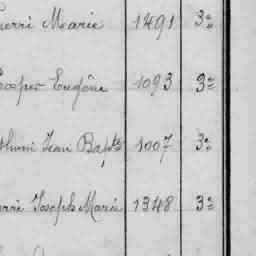 ierri Marie 1491 3e
Cooper Eugène 1093 3e
thuni Jean Bapte 1007 3e
erri Joseph Marie 1348 3e